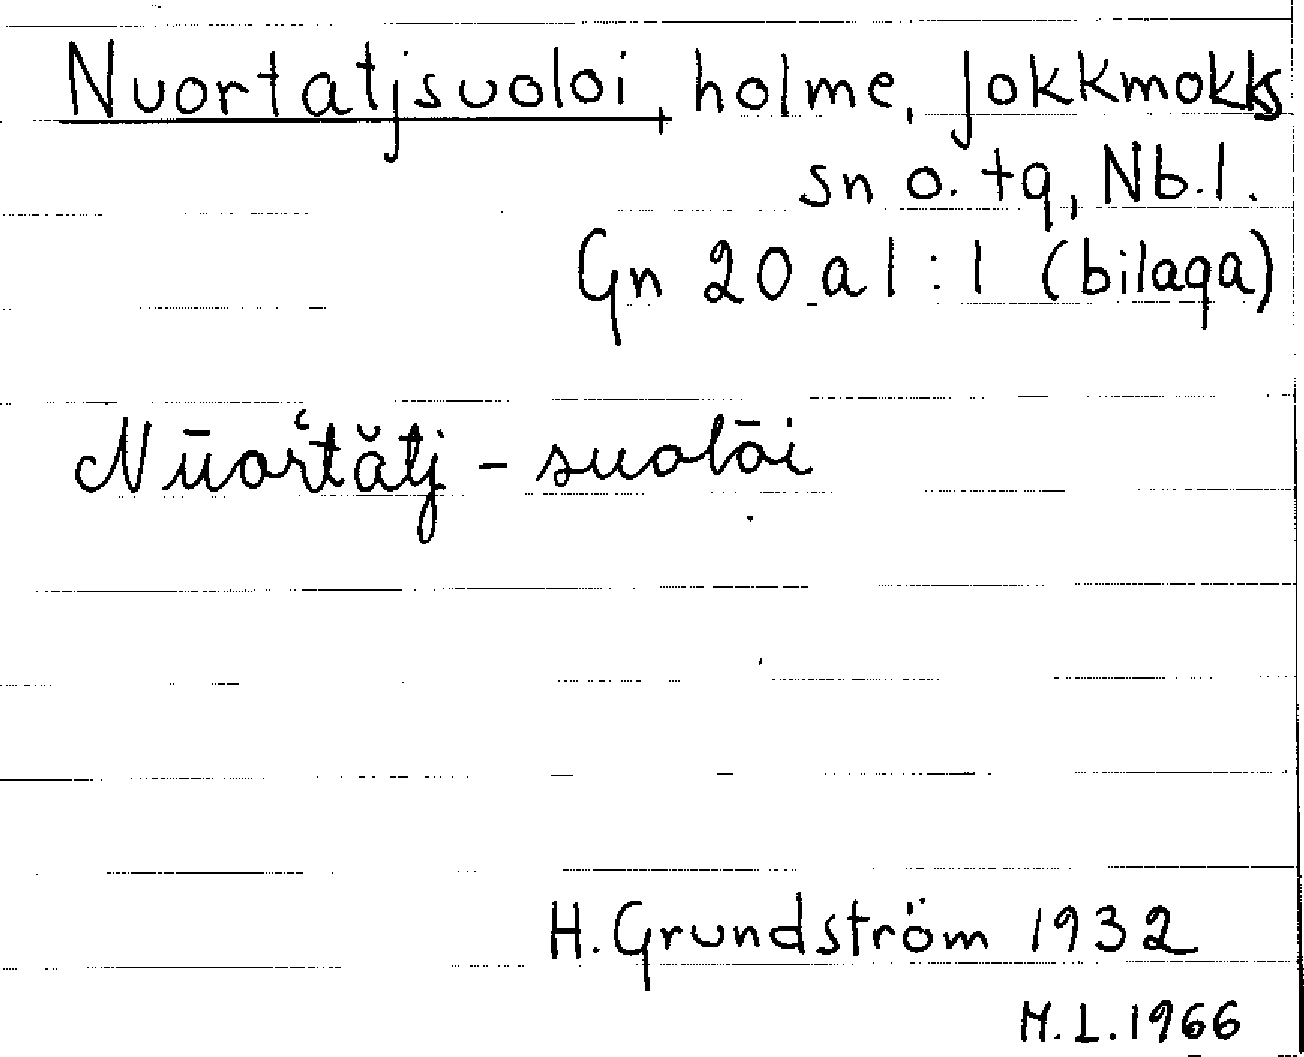 Nuortatjsuoloi, holme, Jokkmokks
sn o. tg, Nb.l.
Gn 20 a l : 1 (bilaga)
Nūorʿtătj - suolōi
H. Grundström 1932
H.L. 1966